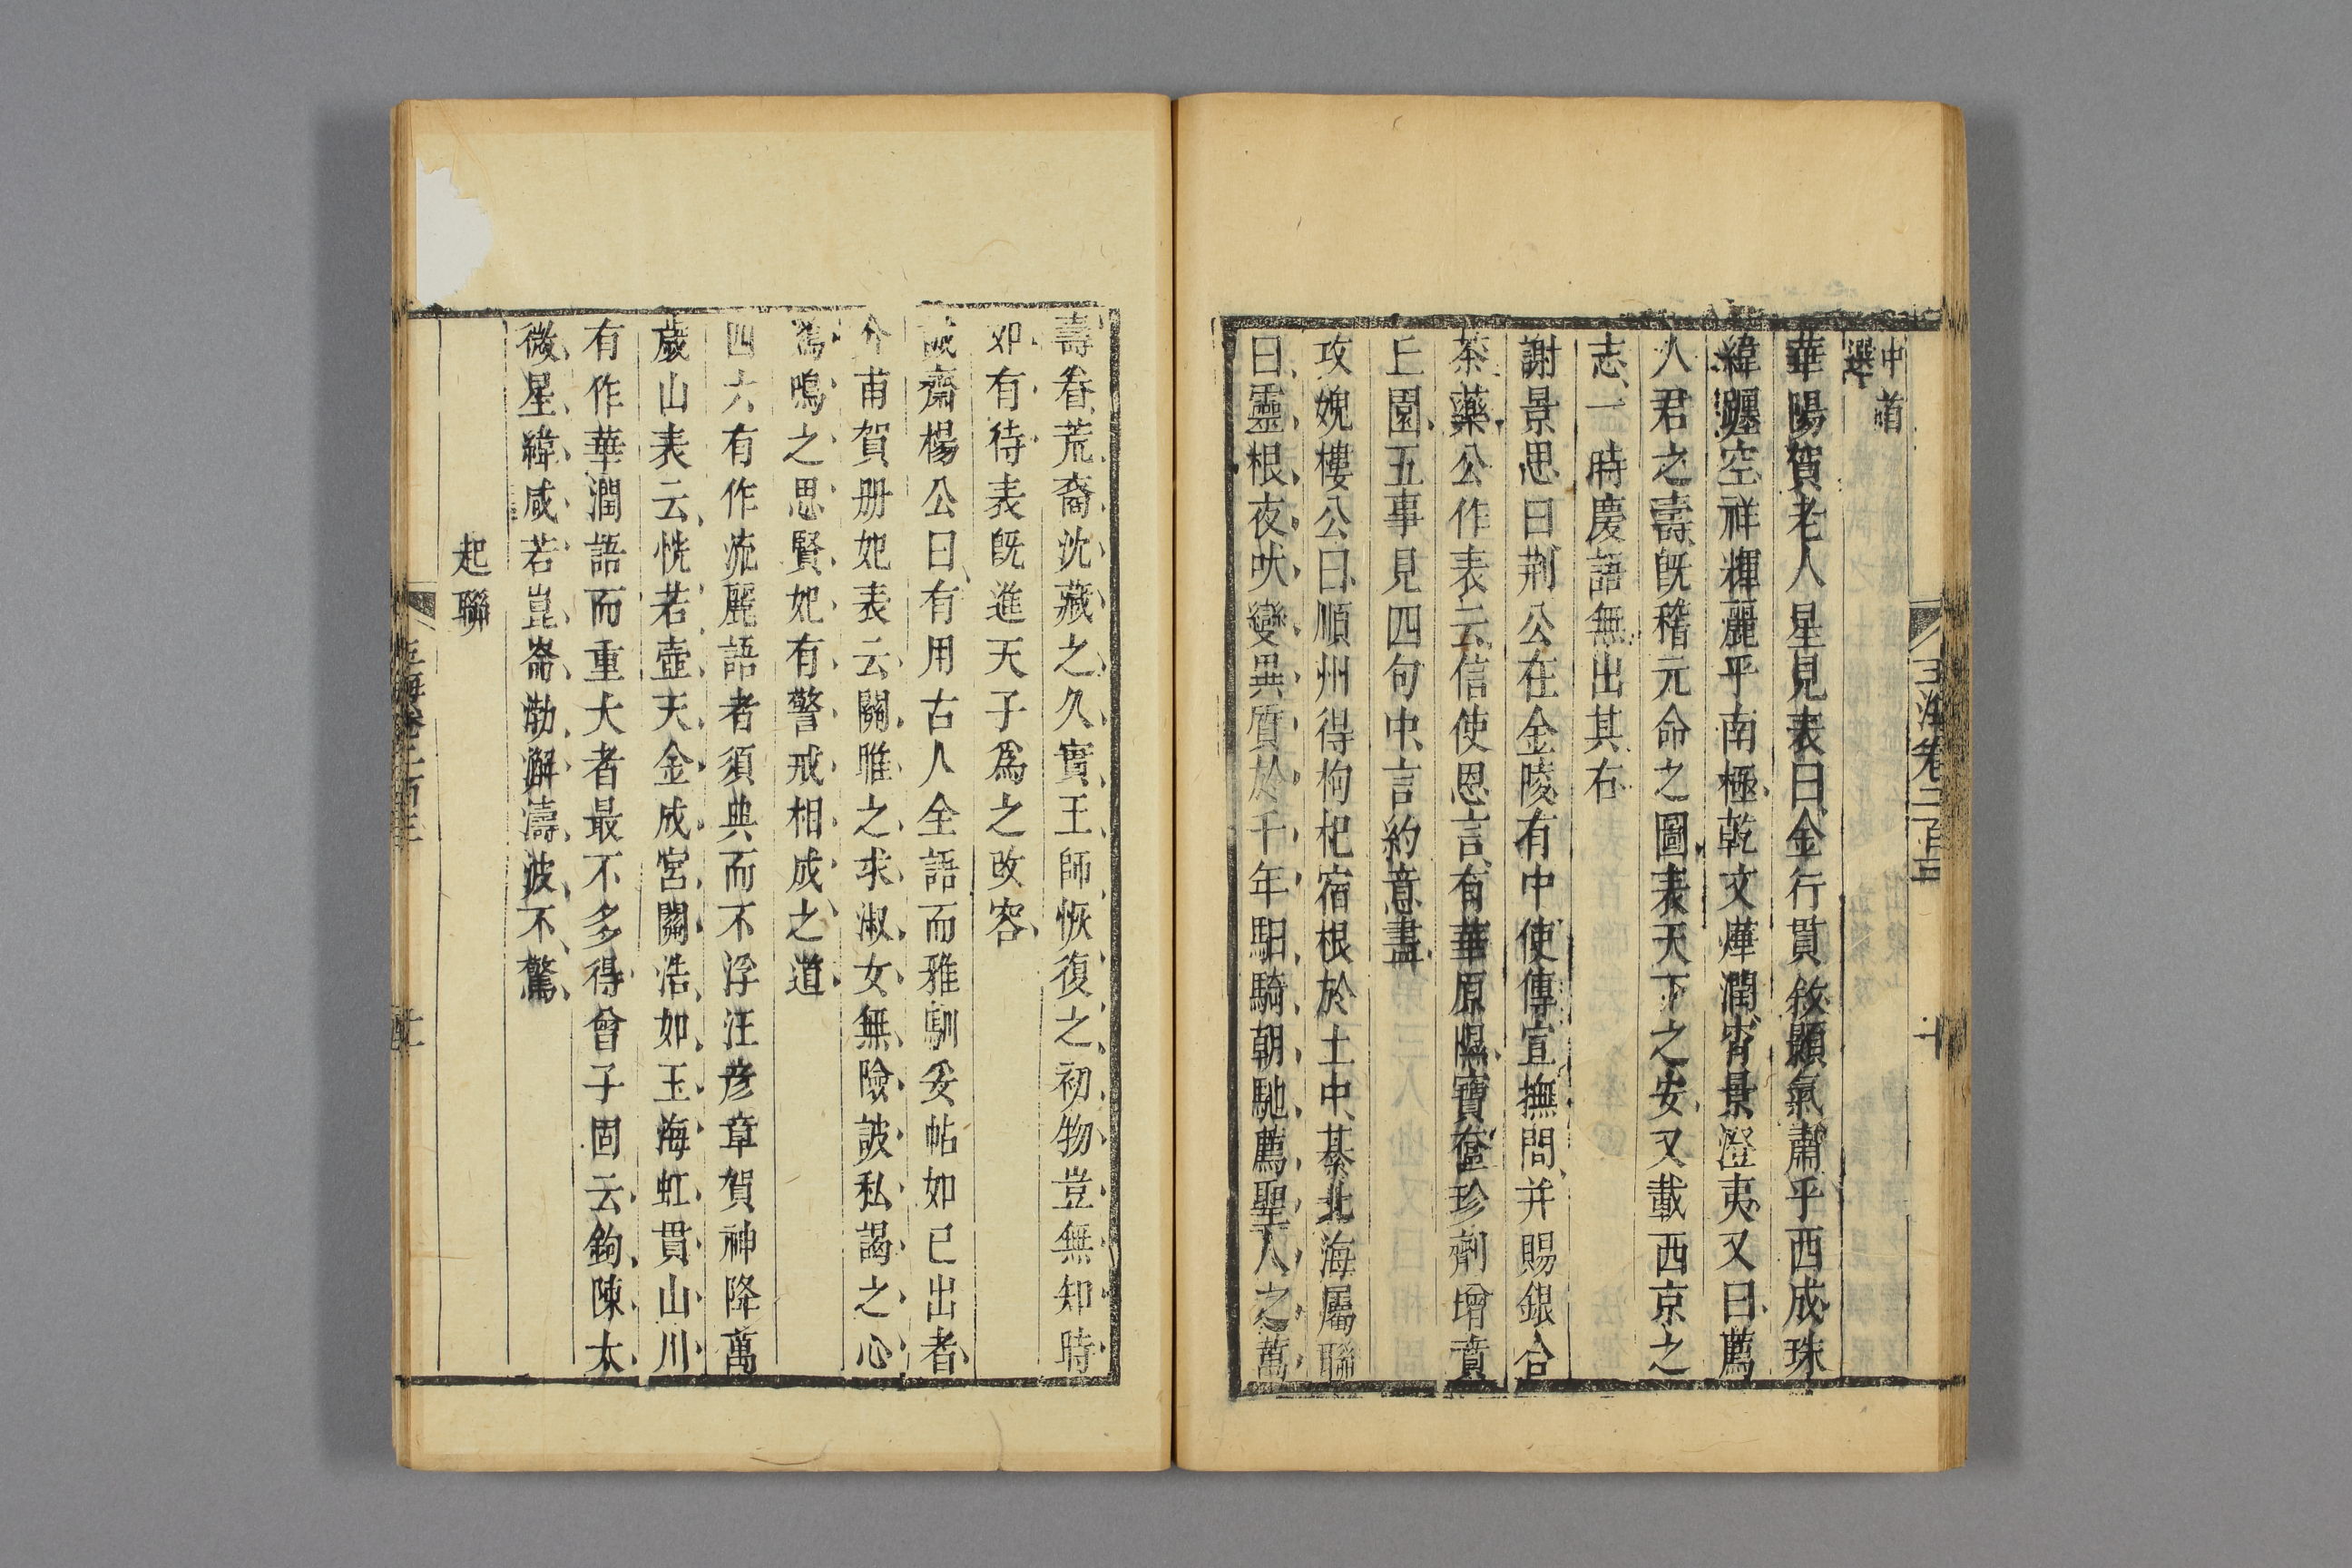 中者
選
華陽賀老人星見表曰金行貫敘顥氣肅乎西成珠
緯躔空祥輝麗乎南極乾文燁潤宵景澄夷又曰薦
人君之壽旣稽元命之圖表天下之安又載西京之
志一時慶語無出其右
謝景思曰荆公在金陵有中使傳宣撫問并賜銀合
茶藥公作表云信使恩言有華原隰寶奩珍劑增賁
丘園五事見四句中言約意盡
攻媿樓公曰順州得枸杞宿根於土中綦北海屬聯
曰靈根夜吠變異質於千年馹騎朝馳薦聖人之萬
玉海卷二百三
十
壽眷荒裔沈藏之久實王師恢復之初物豈無知時
如有待表旣進天子爲之改容
誠齋楊公曰有用古人全語而雅馴妥帖如已出者
介甫賀册妃表云關雎之求淑女無險詖私謁之心
鷄鳴之思賢妃有警戒相成之道
四六有作流麗語者須典而不浮汪彦章賀神降萬
歲山表云恍若壺天金成宮闕浩如玉海虹貫山川
有作華潤語而重大者最不多得曾子固云鉤陳太
微星緯咸若崑崙渤澥濤波不驚
起聯
玉海卷二百三
十一